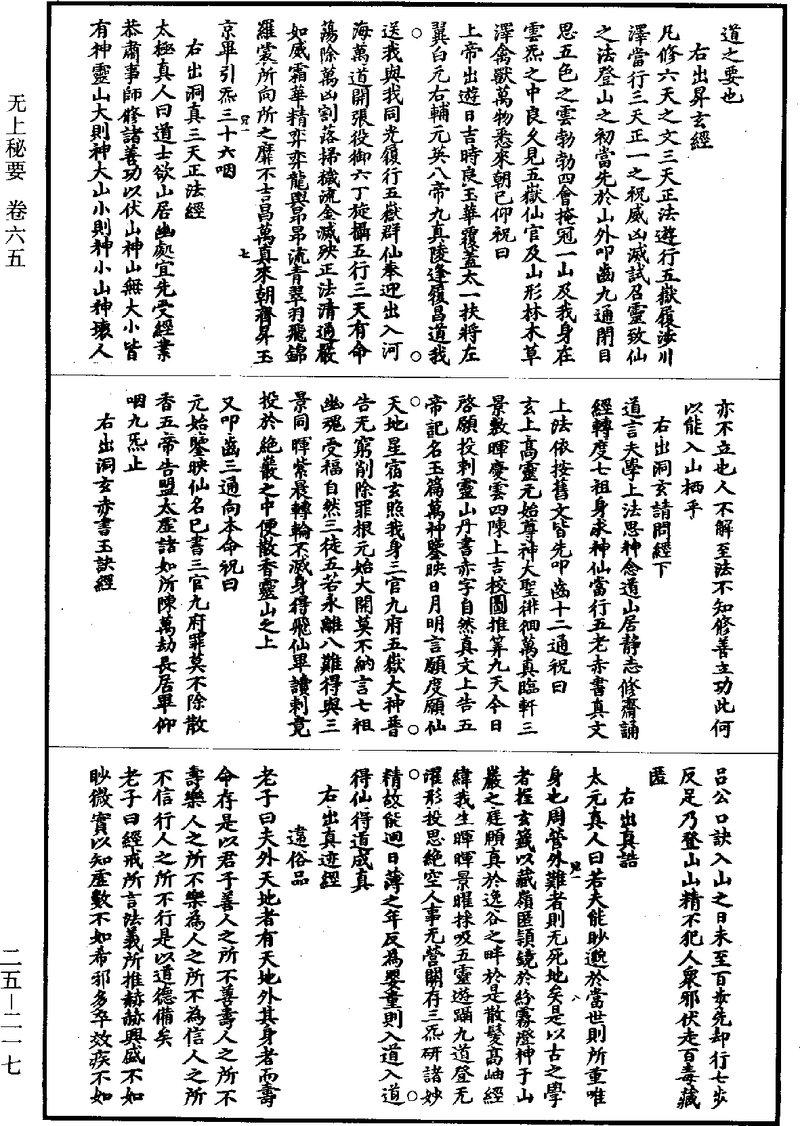 无上秘要 卷六五
二五—二一七
道之要也
右出昇玄經
凡修六天之文三天正法遊行五嶽履涉川
澤當行三天正一之祝威凶滅試召靈致仙
之法登山之初當先於山外叩齒九通閉目
思五色之雲勃勃四會掩冠一山及我身在
雲炁之中良久見五嶽仙官及山形林木草
澤禽獸萬物悉來朝已仰祝曰
上帝出遊日吉時良玉華覆蓋太一扶將左
翼白元右輔元英八帝九真陵逢履昌道我
送我與我同光履行五嶽群仙奉迎出入河
海萬道開張役御六丁旋攝五行三天有命
蕩除萬凶割落掃穢流金滅殃正法清通嚴
如威霜華精弈弈龍輿昂昂流青翠羽飛錦
羅裳所向所之靡不吉昌萬真來朝齊昇玉
京畢引炁三十六咽
右出洞真三天正法經
太極真人曰道士欲山居幽處宜先受經業
恭肅事師修諸善功以伏山神山無大小皆
有神靈山大則神大山小則神小山神壞人
亦不立也人不解至法不知修善立功此何
以能入山栖乎
右出洞玄請問經下
道言夫學上法思神念道山居靜志修齋誦
經轉度七祖身求神仙當行五老赤書真文
上法依按舊文皆先叩齒十二通祝曰
玄上高靈元始尊神大聖徘徊萬真臨軒三
景敷暉慶雲四陳上吉校圖推算九天今日
啓願投刺靈山丹書赤字自然真文上告五
帝記名玉篇萬神鑒映日月明言願度願仙
天地星宿玄照我身三官九府五嶽大神普
告无窮削除罪根元始大開莫不納言七祖
幽魂受福自然三徒五苦永離八難得與三
景同暉紫晨轉輪不滅身得飛仙畢讀刺竟
投於絶嚴之中便散香靈山之上
又叩齒三通向本命祝曰
元始鑒映仙名已書三官九府罪莫不除散
香五帝告盟太虛諸如所陳萬劫長居畢仰
咽九炁止
右出洞玄赤書玉訣經
呂公口訣入山之日未至百步先却行七步
反足乃登山山精不犯人衆邪伏走百毒藏
匿
右出真誥
太元真人曰若夫能眇邈於當世則所重唯
身也周營外難者則无死地矣是以古之學
者握玄籤以藏嶺匿頴鏡於紛霧澄神于山
巖之庭願真於逸谷之畔於是散髮高岫經
緯我生暉暉景曜採吸五靈遊躡九道登无
濯形投思絶空人事无營關存三炁研諸妙
精故能迴日薄之年反為嬰童則入道入道
得仙得道成真
右出真迹經
違俗品
老子曰夫外天地者有天地外其身者而壽
命存是以君子善人之所不善壽人之所不
壽樂人之所不樂為人之所不為信人之所
不信行人之所不行是以道德備矣
老子曰經戒所言法義所推赫赫興盛不如
眇微實以知虛數不如希邪多卒效疾不如